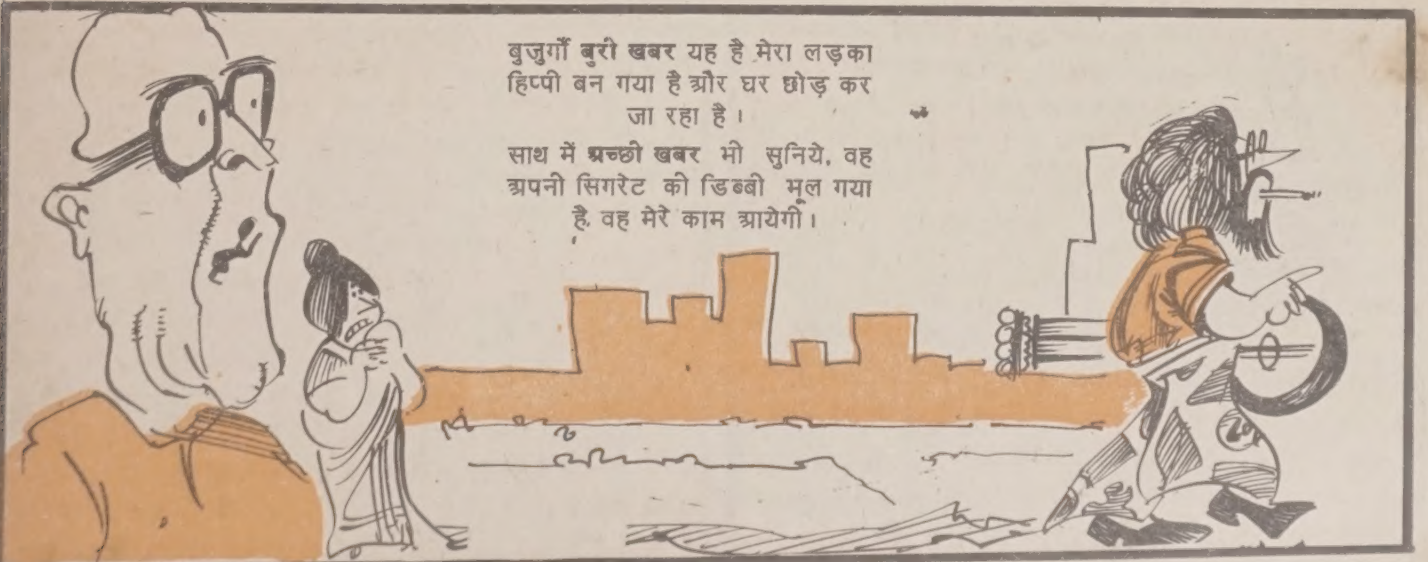 बुजुर्गों बुरी खबर यह है मेरा लड़का
हिप्पी बन गया है और घर छोड़ कर
जा रहा है।
साथ में अच्छी खबर भी सुनिये, वह
अपनी सिगरेट की डिब्बी भूल गया
है, वह मेरे काम आयेगी।